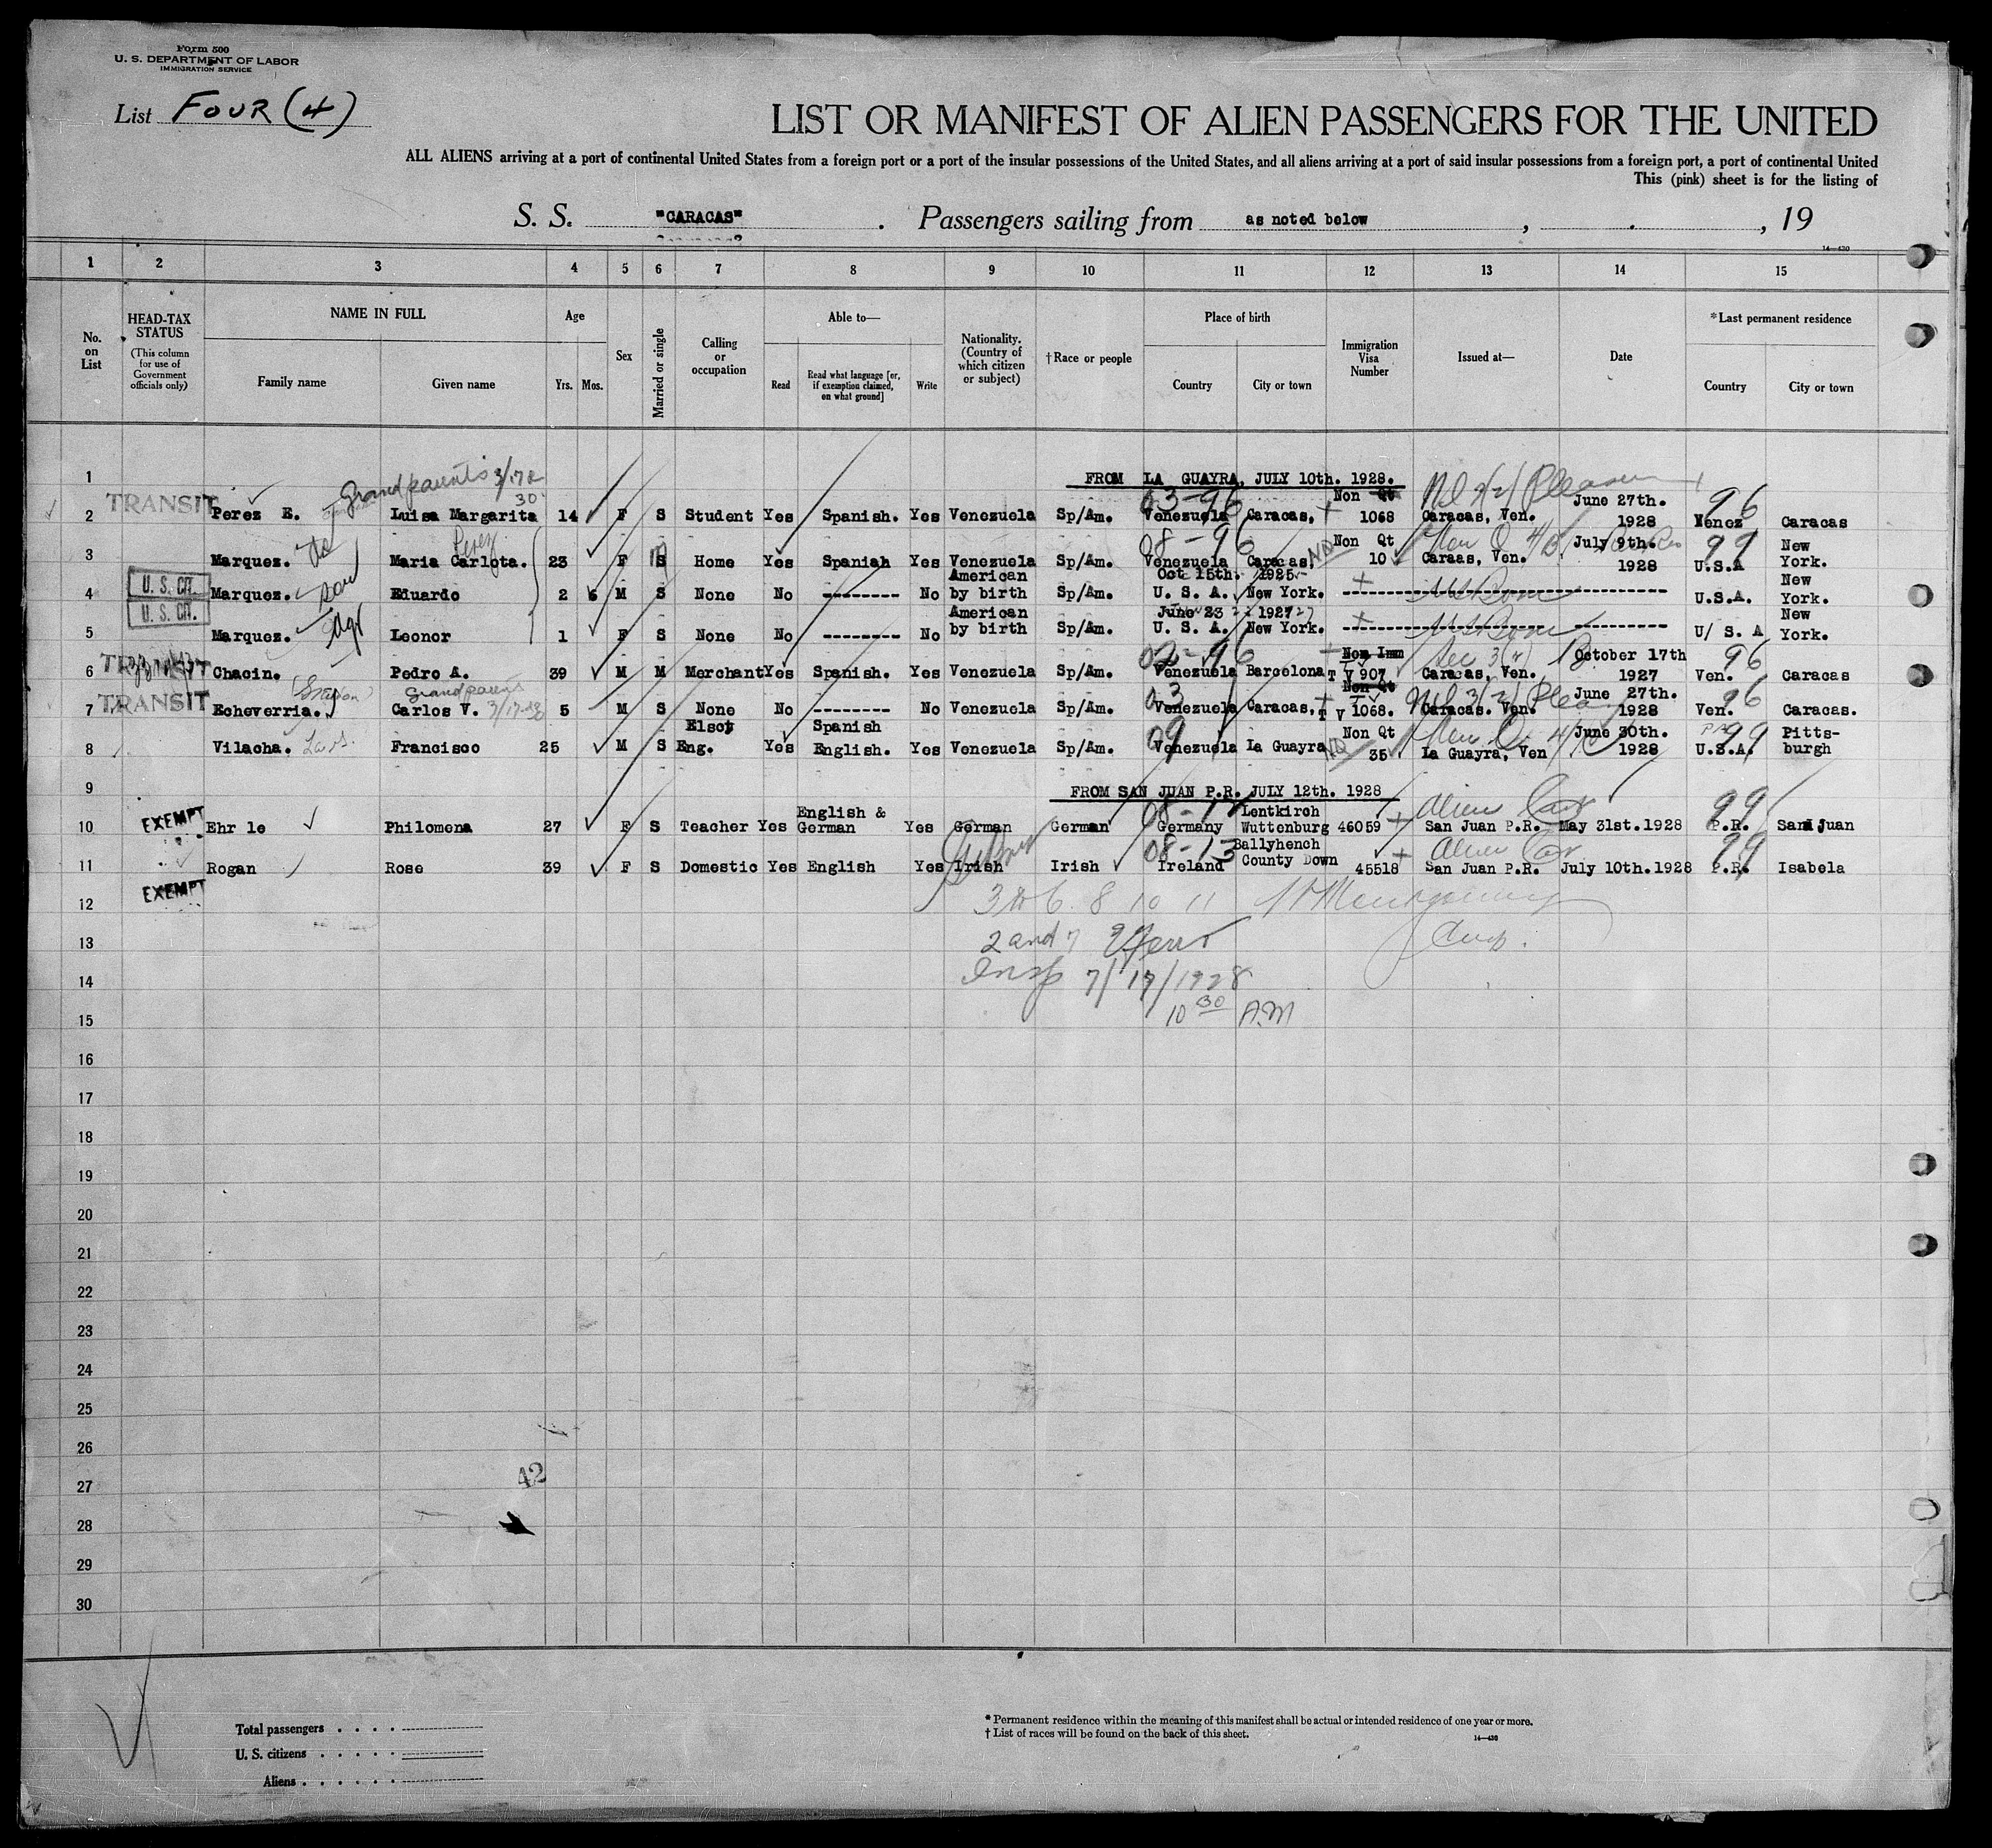 Form 500
U. S. DEPARTMENT OF LABOR
IMMIGRATION SERVICE
List FOUR (4)
LIST OR MANIFEST OF ALIEN PASSENGERS FOR THE UNITED
ALL ALIENS arriving at a port of continental United States from a foreign port or a port of the insular possessions of the United States, and all aliens arriving at a port of said insular possessions from a foreign port, a port of continental United
This (pink) sheet is for the listing of
S. S. "CARACAS" . Passengers sailing from as noted below , , 19
14—430
1 2 3 4 5 6 7 8 9 10 11 12 13 14 15
No. on List
HEAD-TAX STATUS
(This column for use of Government officials only)
NAME IN FULL
Family name Given name
Age
Yrs. Mos.
Sex
Married or single
Calling or occupation
Able to—
Read
Read what language [or, if exemption claimed, on what ground]
Write
Nationality. (Country of which citizen or subject)
†Race or people
Place of birth
Country City or town
Immigration Visa Number
Issued at—
Date
*Last permanent residence
Country City or town
1 Grandparents FROM LA GUAYRA, JULY 10th. 1928.
TRANSIT 03-96 Non Qt June 27th. 96
2 Perez E. Luisa Margarita 14 F S Student Yes Spanish. Yes Venezuela Sp/Am. Venezuela Caracas, 1068 Caracas, Ven. 1928 Nenez Caracas
Perez 08-96 Non Qt July 9th. 99 New
3 Marquez. Maria Carlota. 23 F S Home Yes Spanish Yes Venezuela Sp/Am. Venezuela Caracas, 10 Caraas, Ven. 1928 U.S.A York.
U. S. CIT. American Oct 15th. 1925 New
4 Marquez. son Eduardo 2 6 M S None No -------- No by birth Sp/Am. U. S. A. New York. U.S.A. York.
U. S. CIT. American June 23 1927 New
5 Marquez. Leonor 1 F S None No -------- No by birth Sp/Am. U. S. A. New York. U/ S. A York.
TRANSIT 02-96 Non Imm Sec 3(4) October 17th 96
6 Chacin. Pedro A. 39 M M Merchant Yes Spanish. Yes Venezuela Sp/Am. Venezuela Barcelona T V 907 Caracas, Ven. 1927 Ven. Caracas
TRANSIT Grandparents 03 Non Qt June 27th. 96
7 Echeverria. Carlos V. 5 M S None No -------- No Venezuela Sp/Am. Venezuela Caracas, T V 1068. Caracas. Ven. 1928 Ven. Caracas.
Elsct Spanish 09 Non Qt June 30th. 99 Pitts-
8 Vilacha. Francisco 25 M S Eng. Yes English. Yes Venezuela Sp/Am. Venezuela La Guayra 35 La Guayra, Ven 1928 U.S.A. burgh
9 FROM SAN JUAN P.R. JULY 12th. 1928
EXEMPT English & Lentkirch 99
10 Ehr le Philomena 27 F S Teacher Yes German Yes German German Germany Wuttenburg 46059 San Juan P.R. May 31st.1928 P.R. San Juan
08-13 Ballyhench 99
11 Rogan Rose 39 F S Domestic Yes English Yes Irish Irish Ireland County Down 45518 San Juan P.R. July 10th.1928 P.R. Isabela
EXEMPT
12 3 to 6. 8 10 11
13 2 and 7
14 Insp 7/17/1928
15 10 30 A.M
16
17
18
19
20
21
22
23
24
25
26
27 42
28
29
30
Total passengers . . . .
U. S. citizens . . . . .
Aliens . . . . . .
* Permanent residence within the meaning of this manifest shall be actual or intended residence of one year or more.
† List of races will be found on the back of this sheet.
14—430